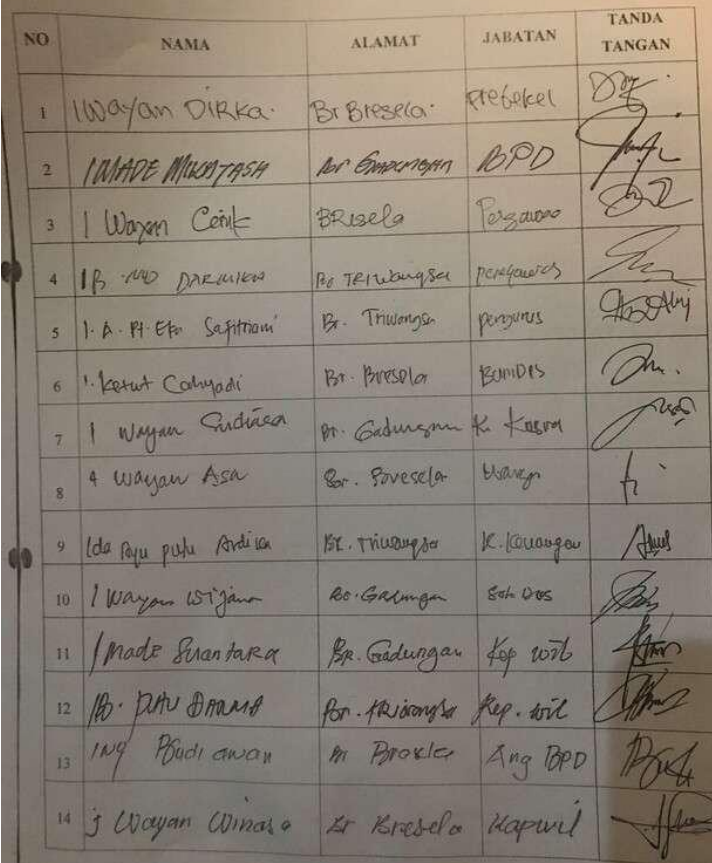 NO NAMA ALAMAT JABATAN TANDA TANGAN
1 I Wayan DIRKA. Br Bresela. Prebekel
2 I MADE Br BPD
3 I Wayan Cenik BResela
4 IB. MD DARMIKA Br TRIWangsa
5 I. A. Pt. Eka Safitriani Br. Triwangsa pengurus
6 I. Ketut Cahyadi Br. Bresela BUMDes
7 I Wayan Sudiasa Br. Gadungan K. Kesra
8 I Wayan Asa Br. Bresela
9 Ida Ayu putu Ardika BR. Triwangsa K. Keuangan
10 I Wayan Wijana Br. Gadungan Sek Des
11 I Made Suantara BR. Gadungan Kep wil
12 IB. PUTU DARMA Br. Triwangsa Kep. wil
13 I NY Budiawan Br Bresela Ang BPD
14 I Wayan Winasa Br Bresela Kapwil